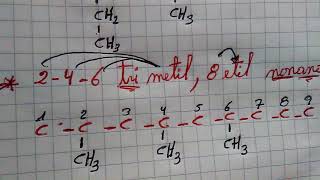 CH₂
CH₃
CH₃
* 2-4-6 tri metil, 8 etil nonano
1 2 3 4 5 6 7 8 9
C - C - C - C - C - C - C - C - C
CH₃ CH₃ CH₃